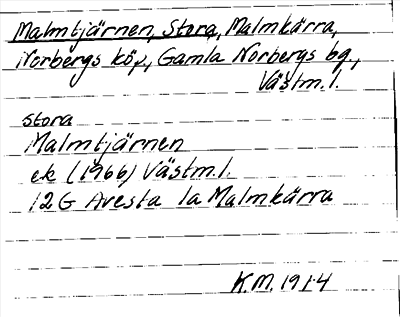 Malmtjärnen, Stora, Malmkärra,
Norbergs köp., Gamla Norbergs bg.,
Västm.l.
Stora
Malmtjärnen
ek (1966) Västm.l.
12G Avesta 1a Malmkärra
K.M. 1914